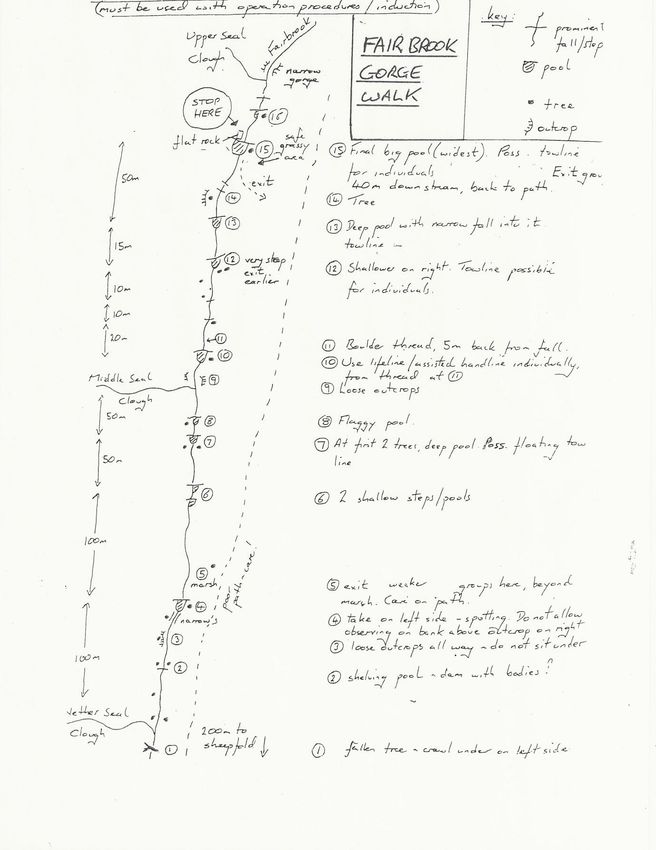 (must be used with operation procedures/induction)
Upper Seal
Clough
Fairbrook
narrow
gorge
STOP
HERE
16
flat rock
15
safe
grassy
area
exit
50m
14
13
15m
12 very steep
exit
earlier
10m
10m
20m
11
10
Middle Seal
Clough
9
50m
8
7
50m
6
100m
5
marsh
poor
path - care!
4
narrow's
3
100m
2
Nether Seal
Clough
1
200m to
sheepfold
FAIRBROOK
GORGE
WALK
key:
prominent
fall/step
pool
tree
outcrop
15 Final big pool (widest). Poss. towline
for individuals Exit
40m downstream, back to path.
14 Tree
13 Deep pool with narrow fall into it.
towline
12 Shallower on right. Towline possible
for individuals.
11 Boulder thread, 5m back from fall.
10 Use lifeline/assisted handline individually,
from thread at 11
9 Loose outcrops
8 Flaggy pool.
7 At first 2 trees, deep pool Poss. floating tow
line
6 2 shallow steps/pools
5 exit weaker groups here, beyond
marsh. Care on path.
4 take on left side - spotting. Do not allow
observing on bank above outcrop on right
3 loose outcrops all way - do not sit under
2 shelving pool - dam with bodies!
1 fallen tree - crawl under on left side